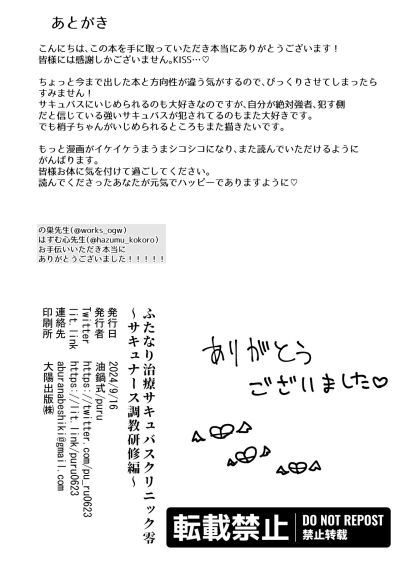 あとがき
こんにちは、この本を手に取っていただき本当にありがとうございます！
皆様には感謝しかございません。KISS…♡
ちょっと今まで出した本と方向性が違う気がするので、びっくりさせてしまったら
すみません！
サキュバスにいじめられるのも大好きなのですが、自分が絶対強者、犯す側
だと信じている強いサキュバスが犯されてるのもまた大好きです。
でも梢子ちゃんがいじめられるところもまた描きたいです。
もっと漫画がイケイケうまうまシコシコになり、また読んでいただけるように
がんばります。
皆様お体に気を付けて過ごしてください。
読んでくださったあなたが元気でハッピーでありますように♡
の巣先生(@works_ogw)
はすむ心先生(@hazumu_kokoro)
お手伝いいただき本当に
ありがとうございました！！！！！
ふたなり治療サキュバスクリニック零
～サキュナース調教研修編～
発行日 2024/9/16
発行者 油鍋式/puru
Twitter https://twitter.com/pu_ru0623
lit.link https://lit.link/puru0623
連絡先 aburanabeshiki@gmail.com
印刷所 大陽出版㈱
ありがとう
ございました♡
転載禁止
DO NOT REPOST
禁止转载